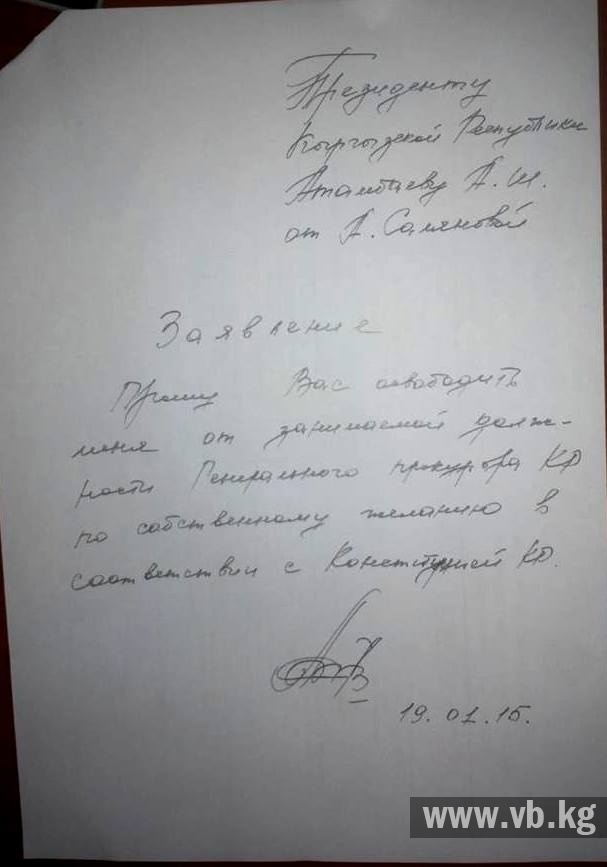 Президенту
Кыргызской Республики
Атамбаеву А.Ш.
от А. Саляновой
Заявление
Прошу Вас освободить
меня от занимаемой долж-
ности Генерального прокурора КР
по собственному желанию в
соответствии с Конституцией КР.
19.01.15.
www.vb.kg